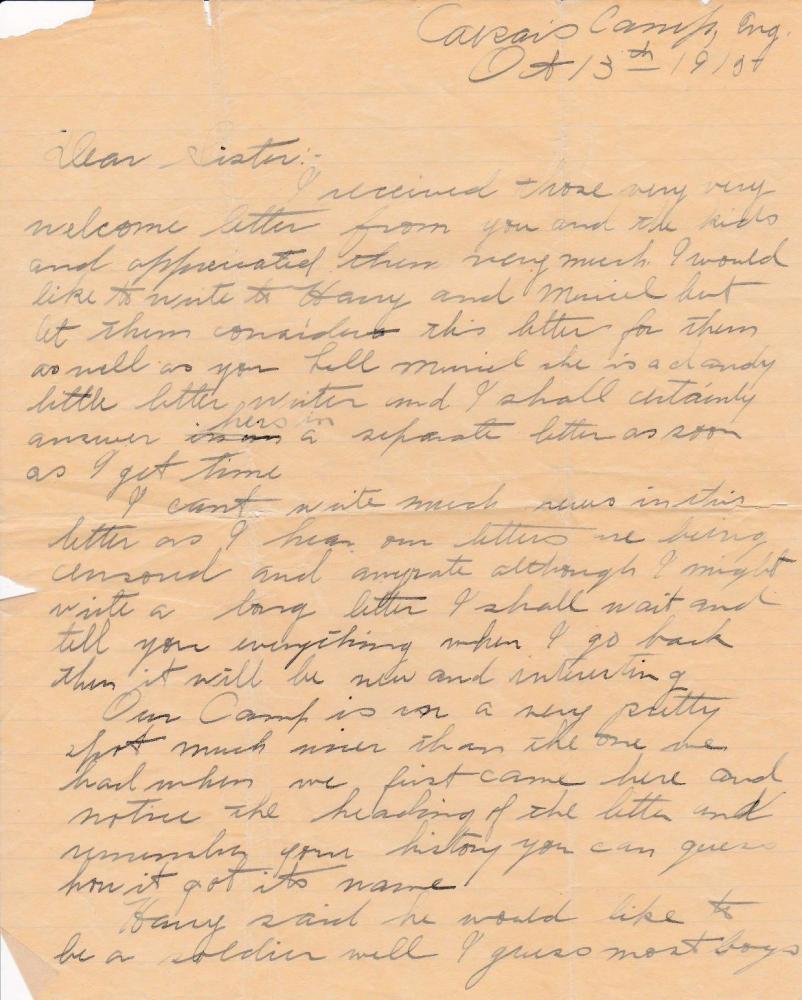 Caesar's Camp, Eng.
Oct 13th 191
Dear Sister:-
I received those very very
welcome letter from you and the kids
and appreciated them very much. I would
like to write to Harry and Muriel but
let them consider this letter for them
as well as you Tell Muriel she is a dandy
little letter writer and I shall certainly
answer hers in a separate letter as soon
as I get time
I cant write much news in this
letter as I hear our letters are being
censored and anyrate although I might
write a long letter I shall wait and
tell you everything when I go back
then it will be new and interesting
Our Camp is in a very pretty
spot much nicer than the one we
had when we first came here and
notice the heading of the letter and
remember your history you can guess
how it got its name.
Harry said he would like to
be a soldier well I guess most boys